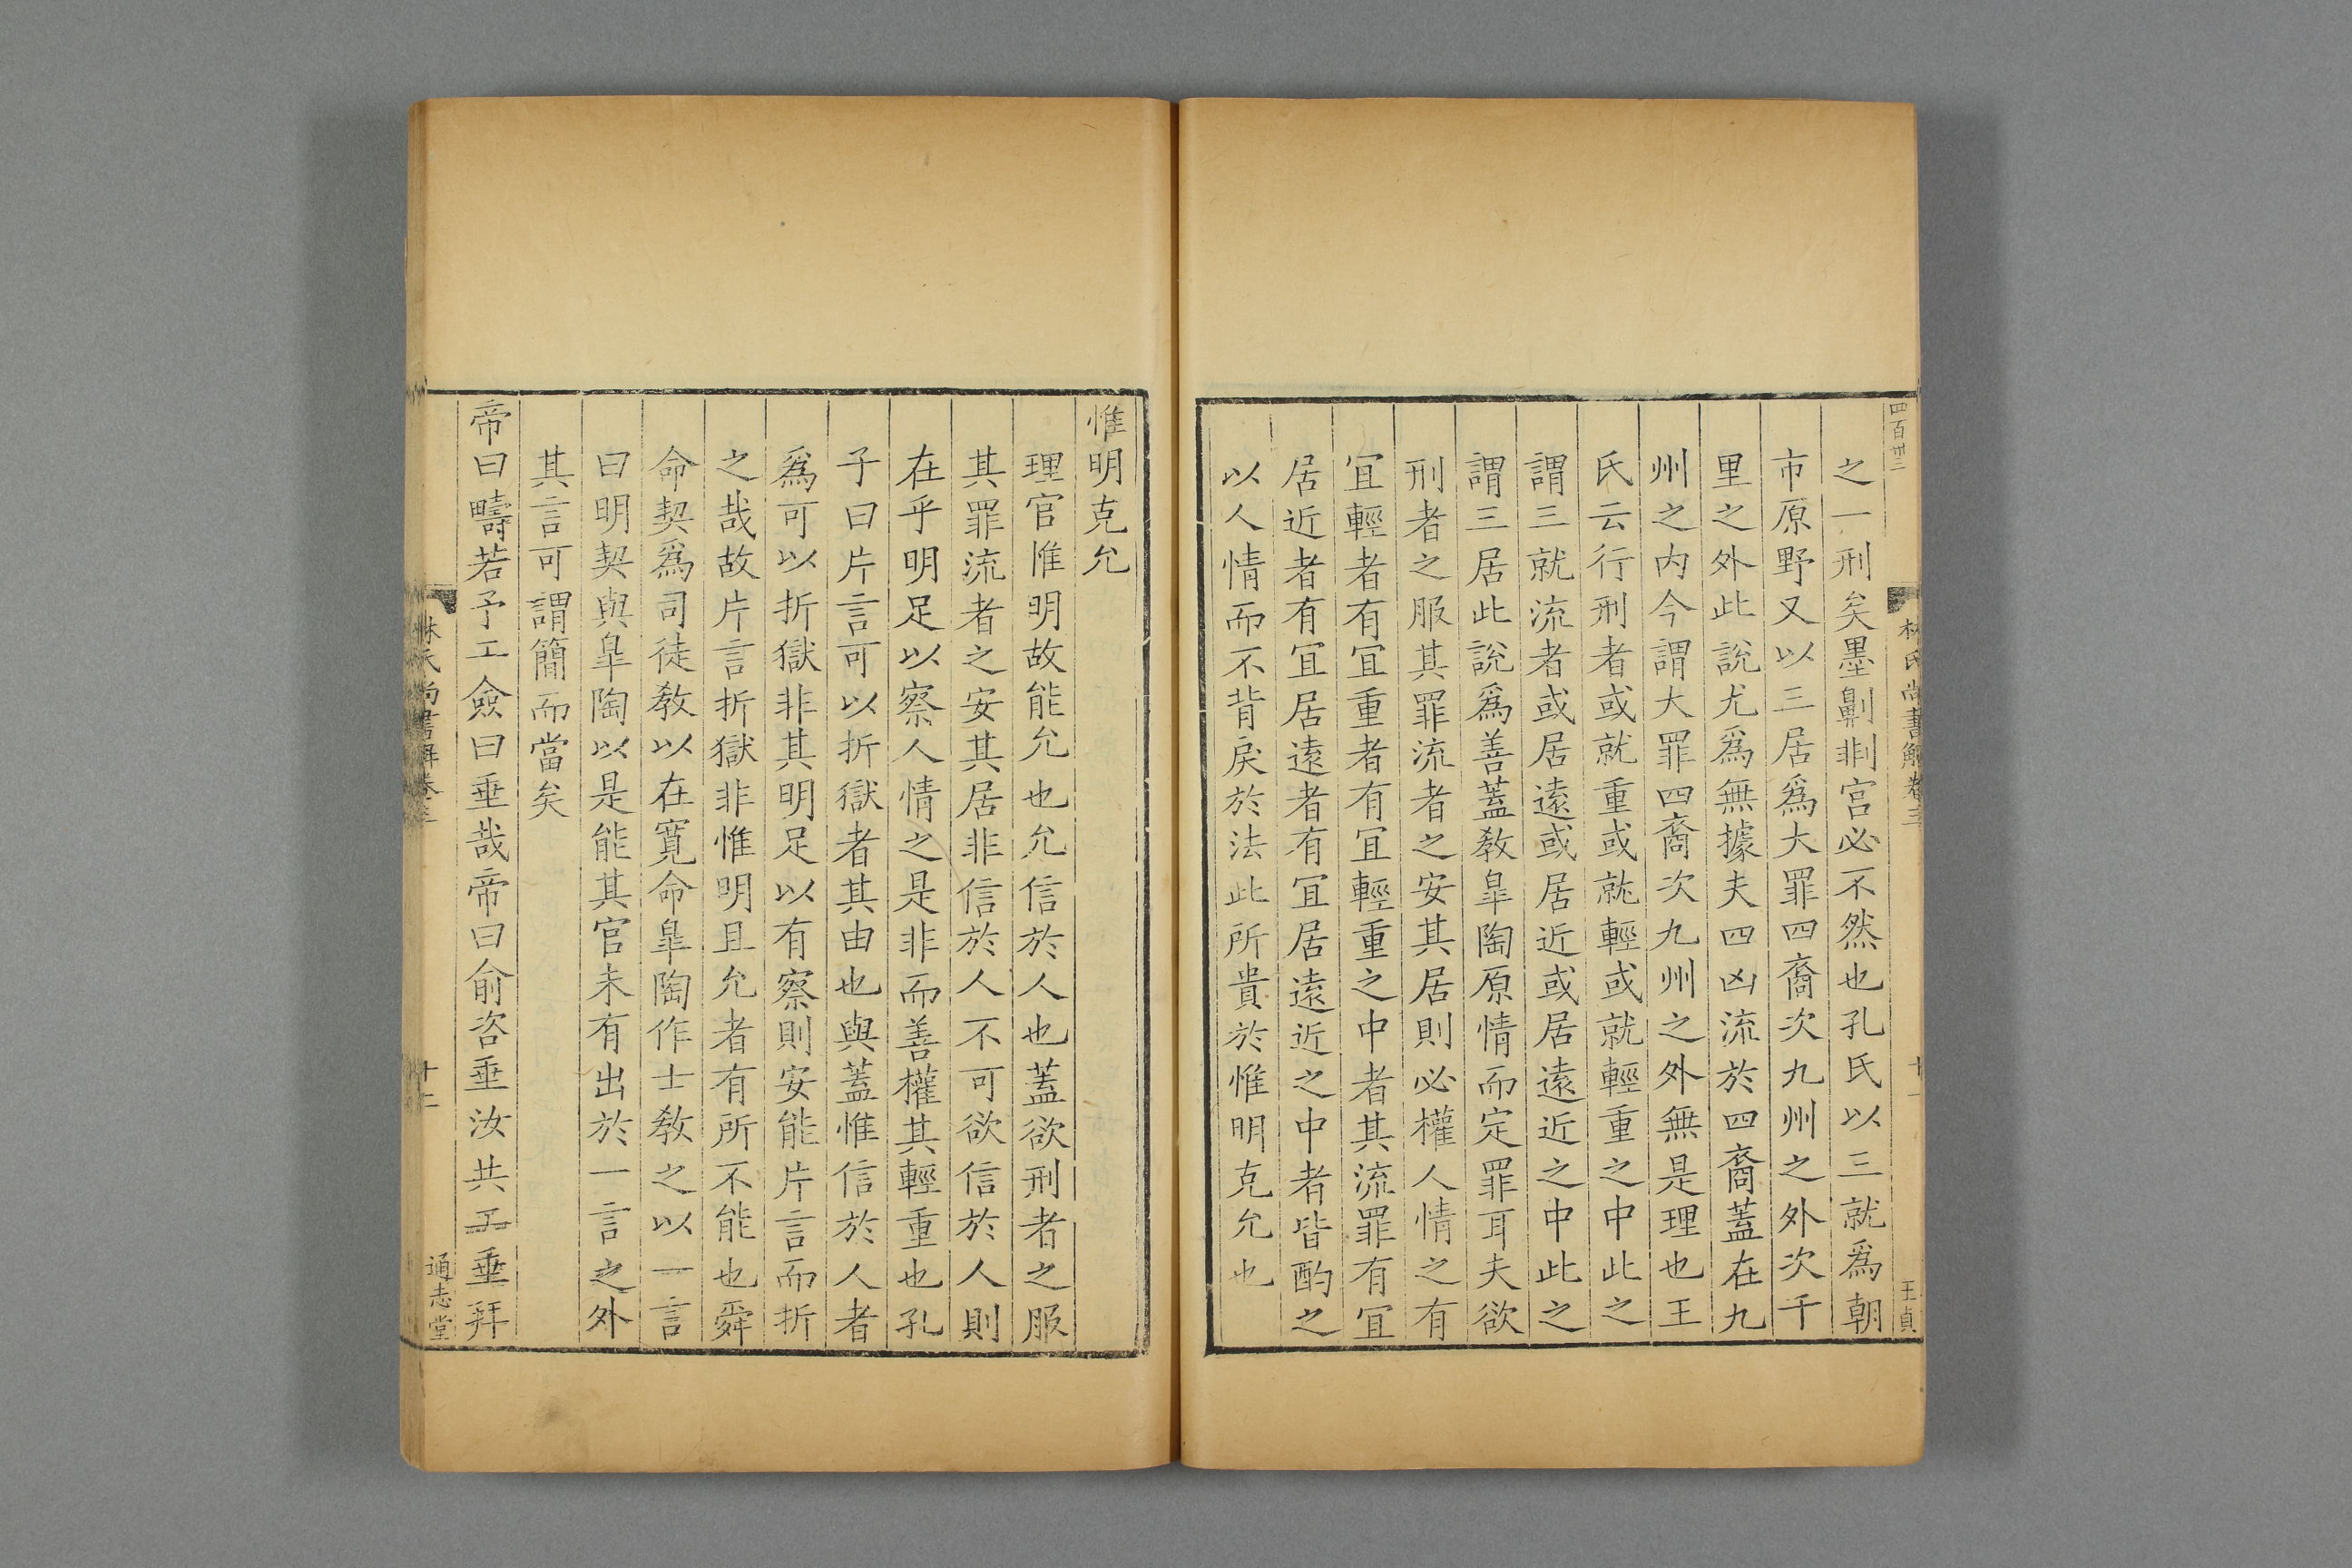 四百卅二
林氏尚書解卷三
十一
王貞
之一刑矣墨劓剕宫必不然也孔氏以三就爲朝
市原野又以三居爲大罪四裔次九州之外次千
里之外此說尤爲無據夫四凶流於四裔蓋在九
州之内今謂大罪四裔次九州之外無是理也王
氏云行刑者或就重或就輕或就輕重之中此之
謂三就流者或居逺或居近或居逺近之中此之
謂三居此說爲善蓋教臯陶原情而定罪耳夫欲
刑者之服其罪流者之安其居則必權人情之有
冝輕者有冝重者有冝輕重之中者其流罪有冝
居近者有冝居逺者有冝居逺近之中者皆酌之
以人情而不背戾於法此所貴於惟明克允也
惟明克允
理官惟明故能允也允信於人也蓋欲刑者之服
其罪流者之安其居非信於人不可欲信於人則
在乎明足以察人情之是非而善權其輕重也孔
子曰片言可以折獄者其由也與蓋惟信於人者
爲可以折獄非其明足以有察則安能片言而折
之哉故片言折獄非惟明且允者有所不能也舜
命契爲司徒教以在寛命臯陶作士教之以一言
曰明契與臯陶以是能其官未有出於一言之外
其言可謂簡而當矣
帝曰疇若予工僉曰垂哉帝曰俞咨垂汝共工垂拜
林氏尚書解卷三
十二
通志堂